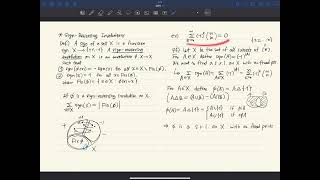 * Sign-Reversing Involutions
Def) A sign of a set X is a function
sgn: X → {-1, 1}. A sign-reversing
involution on X is an involution φ: X → X
(1) sgn(φ(x)) = -sgn(x) for all x ∈ X \ Fix(φ)
(2) sgn(x) = 1 for all x ∈ Fix(φ)
If φ is a sign-reversing involution on X,
Σ sgn(x) = |Fix(φ)|
x∈X
+1
-1
Fix φ
ex) Σ (-1)^k (n k) = 0
pf) Let X be the set of all subsets of
For A ∈ X, define sgn(A) = (-1)^|A|
We need to find a s.r.i. on X with no fixed
For A ∈ X, define φ(A) = A Δ {1}
(A Δ B = (A∪B) - (A∩B))
A Δ {1} = { A∪{1} if 1∉A
A\{1} if 1∈A
⇒ φ is a s.r.i. on X with no fixed points